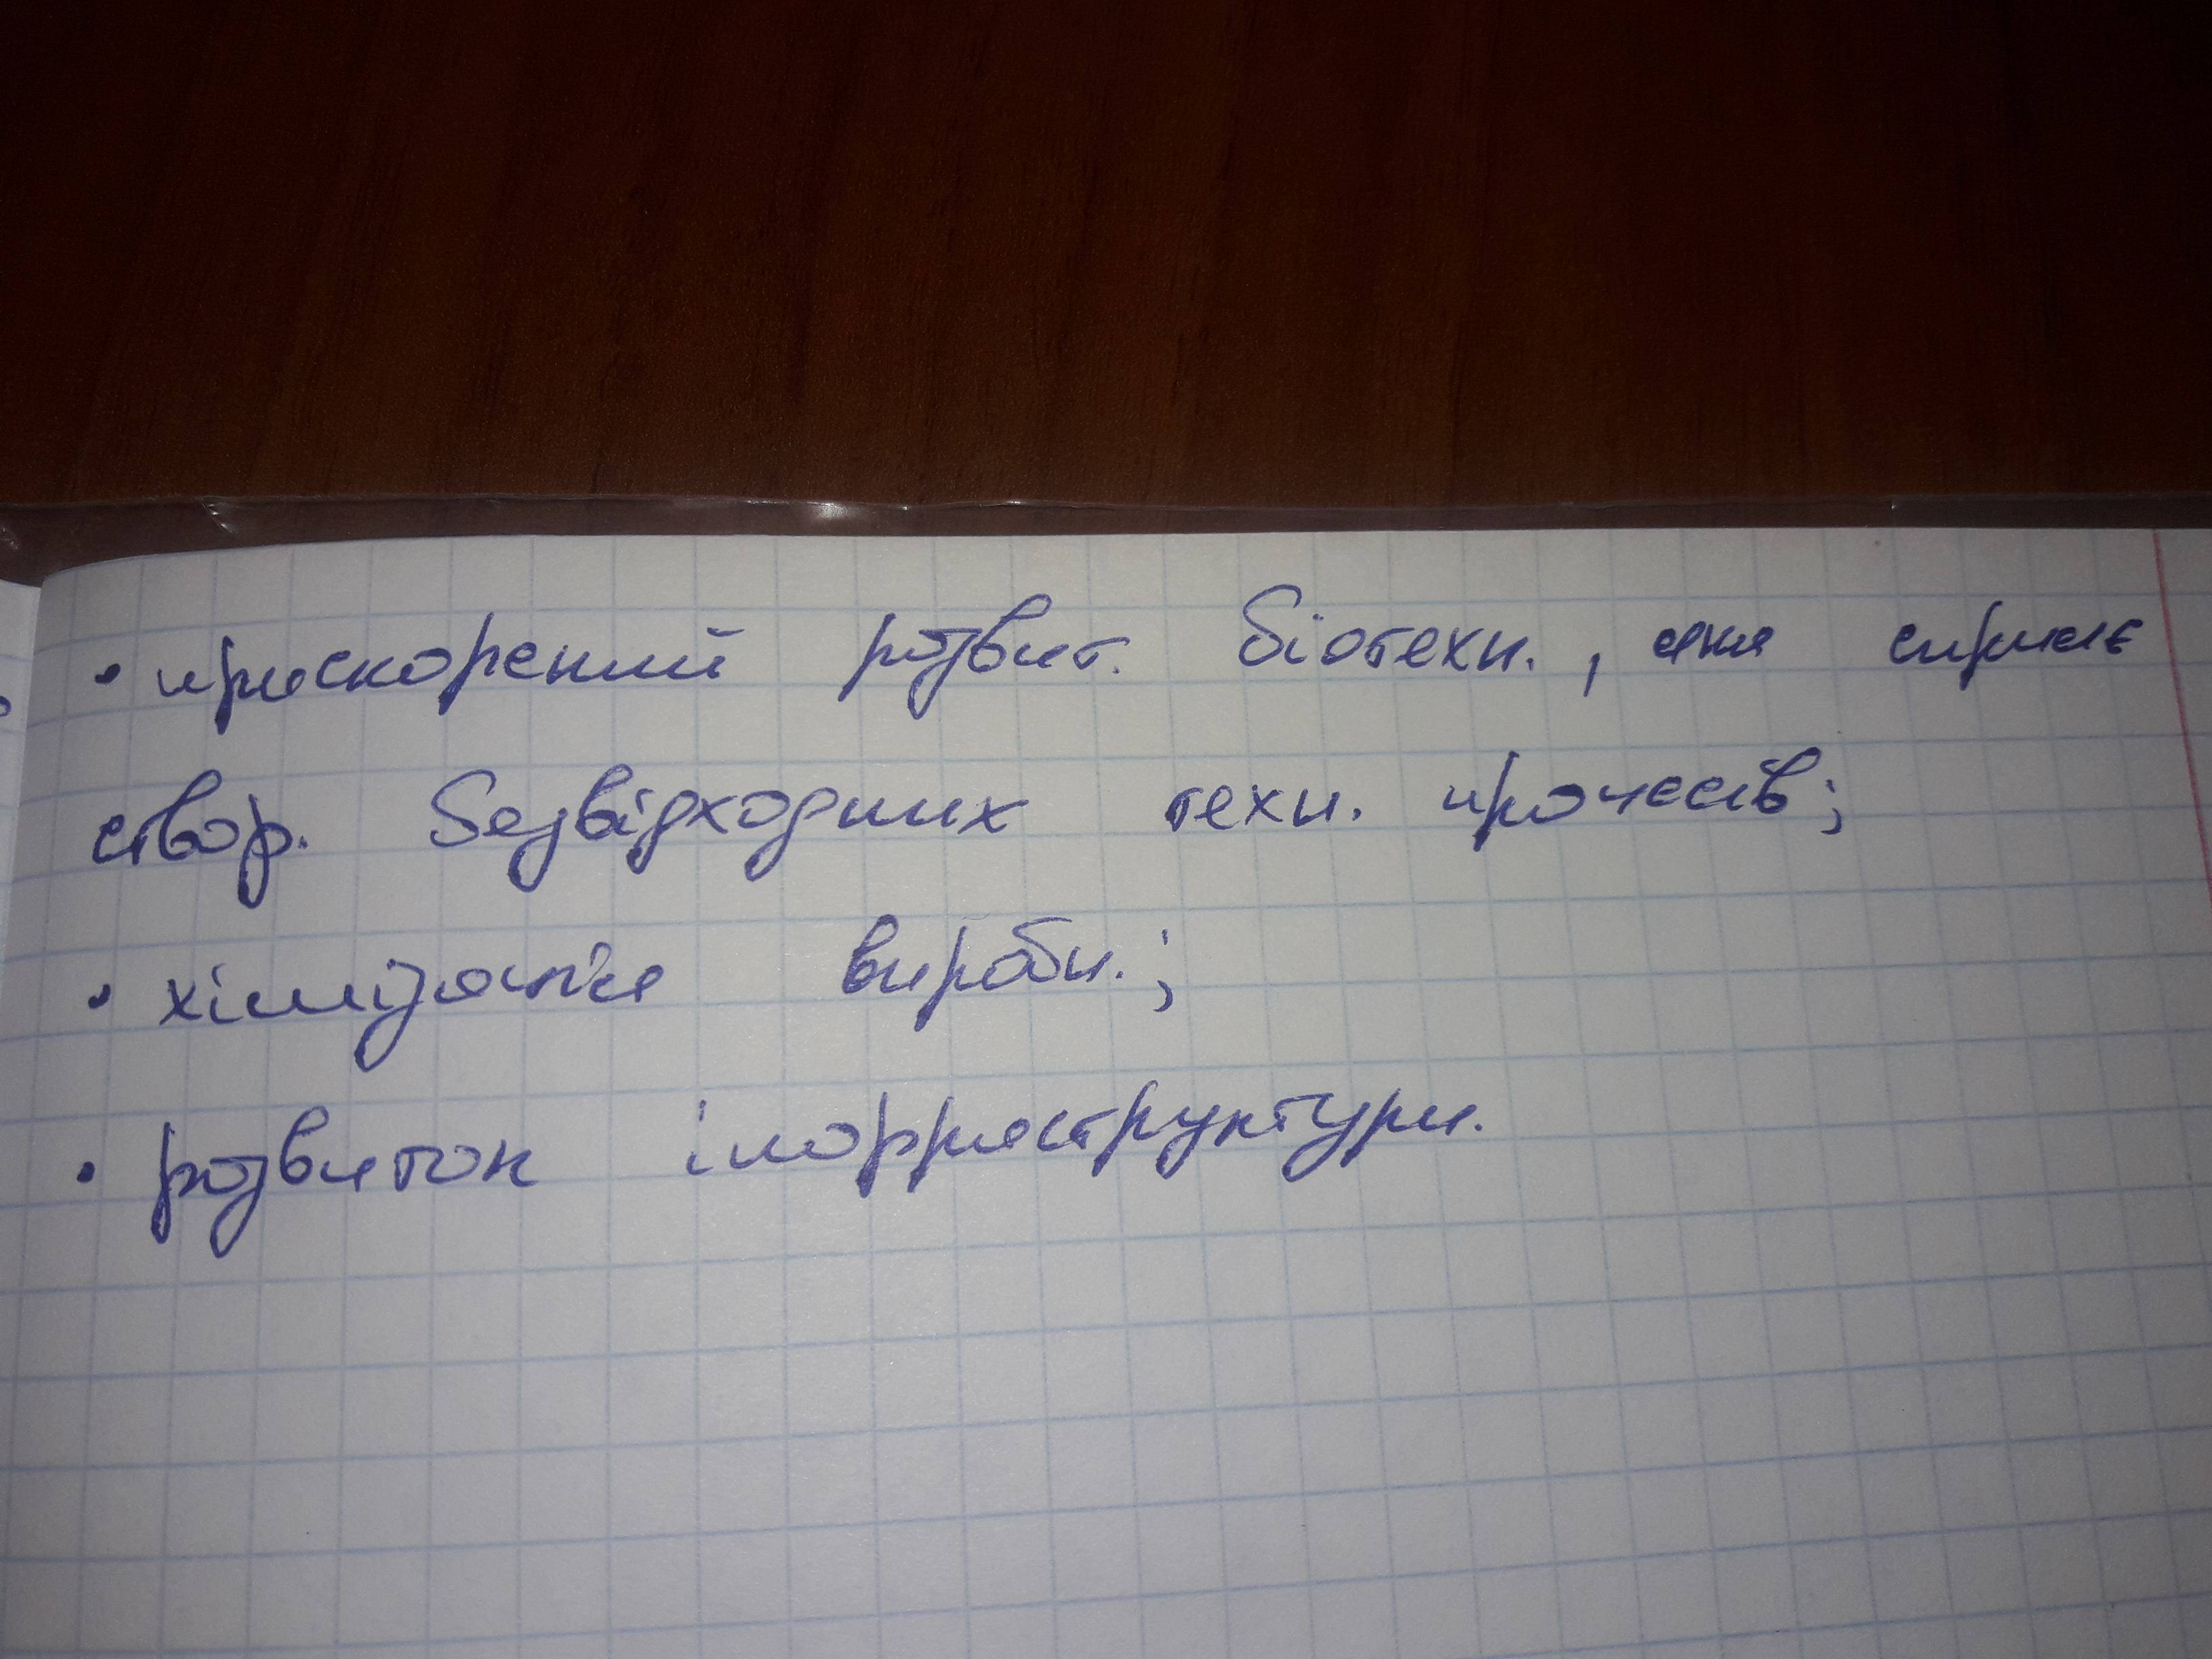 • прискорений розвит. біотехн., яка сприяє
створ. безвідходних техн. процесів;
• хімізація виробн.;
• розвиток інфраструктури.